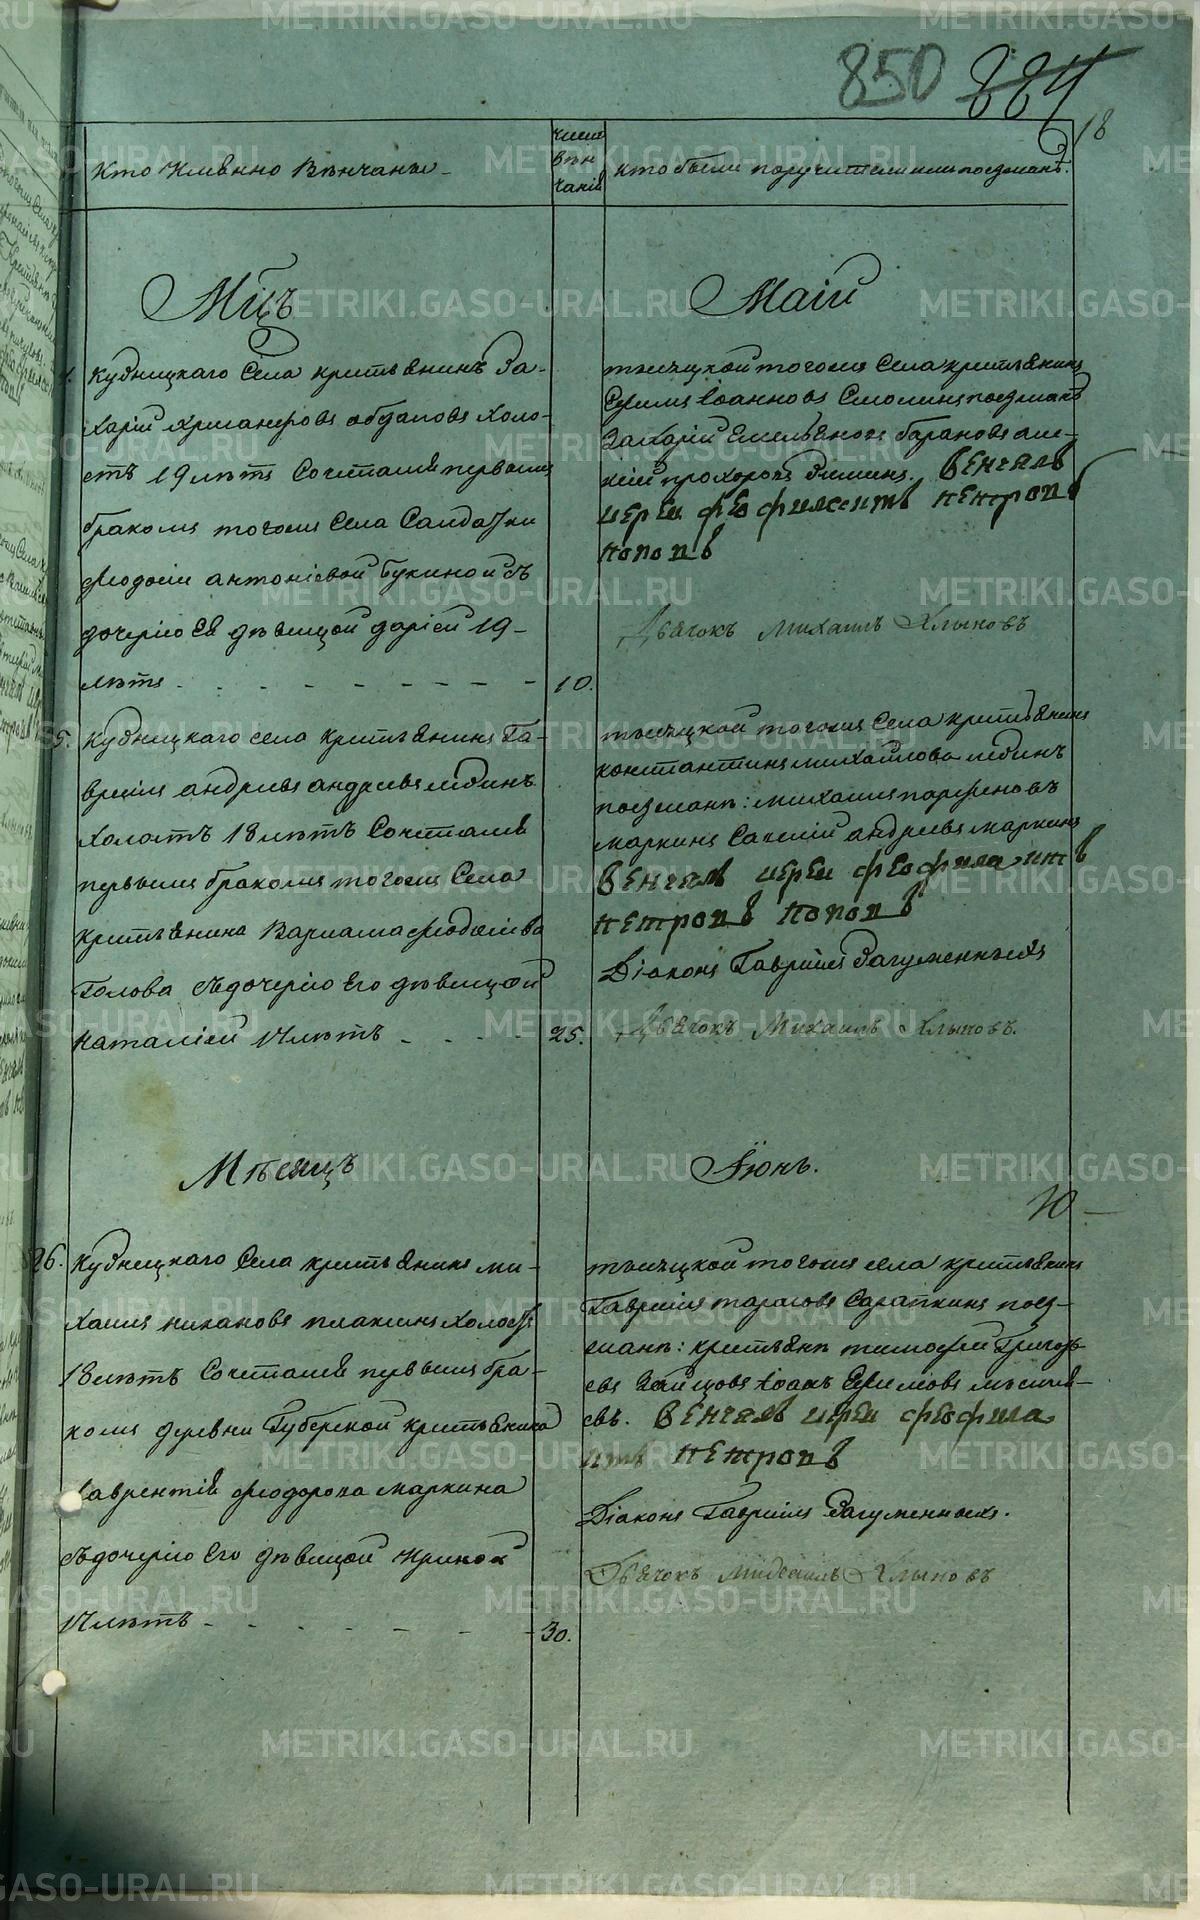 850 884
18
Кто Имѣнно Вѣнчаны
числ
вѣн
чанiй
кто были поручители или поезжанѣ.
Мцъ
Маiй
4. Кудницкаго Села крестьянинъ За-
харiй
холо-
стъ 19 лѣтъ Сочетался первымъ
бракомъ тогожъ Села Салдатки
Феодосiи антонiевой Букиной съ
дочерiю Ея дѣвицей дарiей 19
лѣтъ
10.
тысяцкой тогожъ Села крестьянинъ
Ефимъ Iоанновъ Смолинъ поезжанѣ
Захарiй Емельяновъ барановъ але-
ксiй прохоровъ Зиминъ. Венчалъ
иереи феофилактъ петровъ
поповъ
Дьячокъ Михаилъ Хлыновъ
5. Кудницкаго села крестьянинъ Га-
врiилъ андреевъ
холостъ 18 лѣтъ Сочетался
первымъ бракомъ тогожъ Села
крестьянина Варлама Феодосiева
Голова съ дочерiю Его дѣвицей
наталiей 17 лѣтъ
25.
тысяцкой тогожъ Села крестьянинъ
константинъ михайловъ
поезжанѣ: михаилъ парфеновъ
маркинъ Савелiй андреевъ маркинъ
венчалъ иереи феофилактъ
петровъ поповъ
Дiаконъ Гаврiилъ Загуменныхъ
Дьячокъ Михаилъ Хлыновъ.
Мѣсяцъ
Iюнь.
10
26. Кудницкаго Села крестьянинъ ми-
хаилъ никановъ плаксинъ холостъ
18 лѣтъ Сочетался первымъ бра-
комъ деревни Губерской крестьянина
Лаврентiя Феодорова маркина
съ дочерiю Его дѣвицей Ириной
17 лѣтъ
30.
тысяцкой тогожъ села крестьянинъ
Гаврiилъ тарасовъ Сарапкинъ поез-
жанѣ: крестьянѣ тимофей Григорь-
евъ Зайцовъ Iоанъ Ефимовъ
евъ. венчалъ иереи феофила
ктъ петровъ
Дiаконъ Гаврiилъ Загуменныхъ.
Дьячокъ Михаилъ Хлыновъ
METRIKI.GASO-URAL.RU